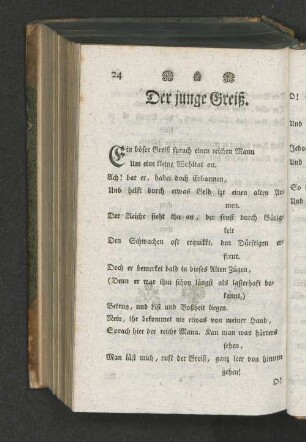 24
Der junge Greiß.
Ein böser Greiß sprach einen reichen Mann
Um eine kleine Wohltat an.
Ach! bat er, habet doch Erbarmen,
Und helft durch etwas Geld izt einen alten Ar-
men.
Der Reiche sieht ihn an, der sonst durch Gütig-
keit
Den Schwachen oft erquikkt, den Dürftigen er-
freut.
Doch er bemerket bald in dieses Alten Zügen,
(Denn er war ihm schon längst als lasterhaft be-
kannt,)
Betrug, und List und Bosheit liegen.
Nein, ihr bekommet nie etwas von meiner Hand,
Sprach hier der reiche Mann. Kan man was härters
sehen,
Man läst mich, ruft der Greiß, ganz leer von hinnen
gehen!
O!
O!
Und
Und